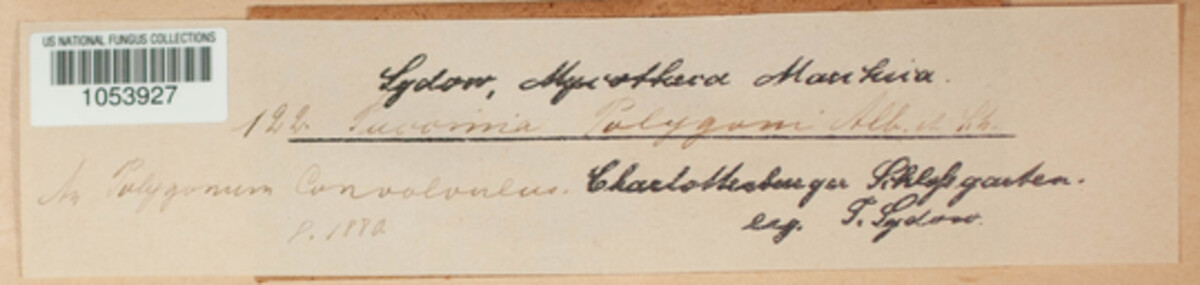 US NATIONAL FUNGUS COLLECTIONS
1053927
Sydow, Mycotheca Marchica.
122. Puccinia Polygoni Alb. et Sch.
An Polygonum Convolvulus. Charlottenburger Schloßgarten.
1880
leg. P. Sydow.